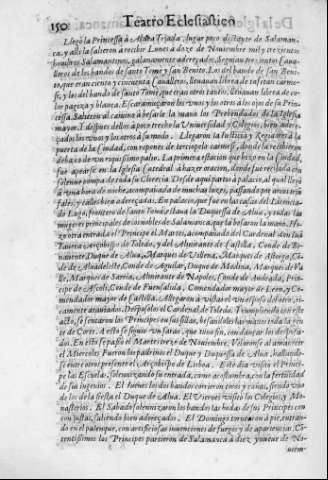 150 Teatro Eclesiastico
Llegò la Princessa à Aldea Texada, lugar poco distante de Salaman-
ca, y alli la salieron à recibir Lunes à doze de Noviembre mil y trezientos
hombres Salamantinos, galanamente adereçados. Seguian trezientos Cava-
lleros de los bandos de santo Tomè y san Benito. Los del bando de san Beni-
to, que eran ciento y cincuenta Cavalleros, llevaban librea de carme-
sì, y los del bando de santo Tomè, que eran otros tantos, llevaban librea de co-
lor pagiza y blanca. Escaramuçaron los unos y los otros à los ojos de su Prin-
cessa. Salieron al camino à besarle la mano los Prebendados de la Iglesia
mayor, y despues dellos à poco trecho la Universidad y Colegios, bien adere-
çados los unos y los otros à su modo. Llegaron la Iusticia y Regidores à la
puerta de la Ciudad, con ropones de terciopelo carmesì, donde la recibieron
debaxo de un riquissimo palio. La primera estacion que hizo en la Ciudad,
fue apearse en la Iglesia Catedral à hazer oracion, donde fue recibida con
solemne pompa de toda su Clerecia. Desde aqui partiò à palacio, al qual llegò
à una hora de noche, acompañada de muchas luzes, passando por arcos triun-
fales, y calles bien adereçadas. En palacio, que fue en las casas del Licencia-
do Lugo, frontero de santo Tomè, estaba la Duquessa de Alva, y todas las
mugeres principales de nobles de Salamanca, que la besaron la mano. Hi-
zo otra entrada el Principe el Martes, acompañado del Cardenal don Iuan
Tavera Arçobispo de Toledo, y del Almirante de Castilla, Conde de Be-
navente Duque de Alva, Marques de Villena, Marques de Astorga, Cõ-
de de Alva de Liste, Conde de Aguilar, Duque de Medina, Marques de Va-
lle, Marques de Sarria, Almirante de Napoles, Conde de Andrada, Prin-
cipe de Ascoli, Conde de Fuensalida, Comendador mayor de Leon, y Co-
mendador mayor de Castilla. Allegaron à visitar el un esposo del otro, ri-
camente ataviados. Desposòlos el Cardenal de Toledo. Y cumpliendo con este
acto, se sentaron los Principes en sus sillas, besandoles las manos toda la gen-
te de Corte. A esto se siguiò un sarao, que tuvo fin, con dançar los despos-
ados. En esto se passò el Martes treze de Noviembre. Velaronse al amanecer
el Miercoles. Fueron los padrinos el Duque y Duquessa de Alva, hallando-
se entre otros presente el Arçobispo de Lisboa. Este dia visitò el Princi-
pe las Escuelas, solenizando su entrada, como acostumbra, con la fertilidad
de sus ingenios. El Iueves los dos bandos corrieron toros y cañas, siendo uno
de los de la fiesta el Duque de Alva. El Viernes visitò los Colegios, y Mo-
nasterios. El Sabado solenizaron los bandos las bodas de sus Principes con
con justas, saliendo bien adereçados. El Domingo tornearon à pie, entran-
do en el palenque, con artificiosas invenciones de fuegos y de apariencias. Cõ-
tentissimos los Principes partieron de Salamanca à diez y nueve de No-
viem-